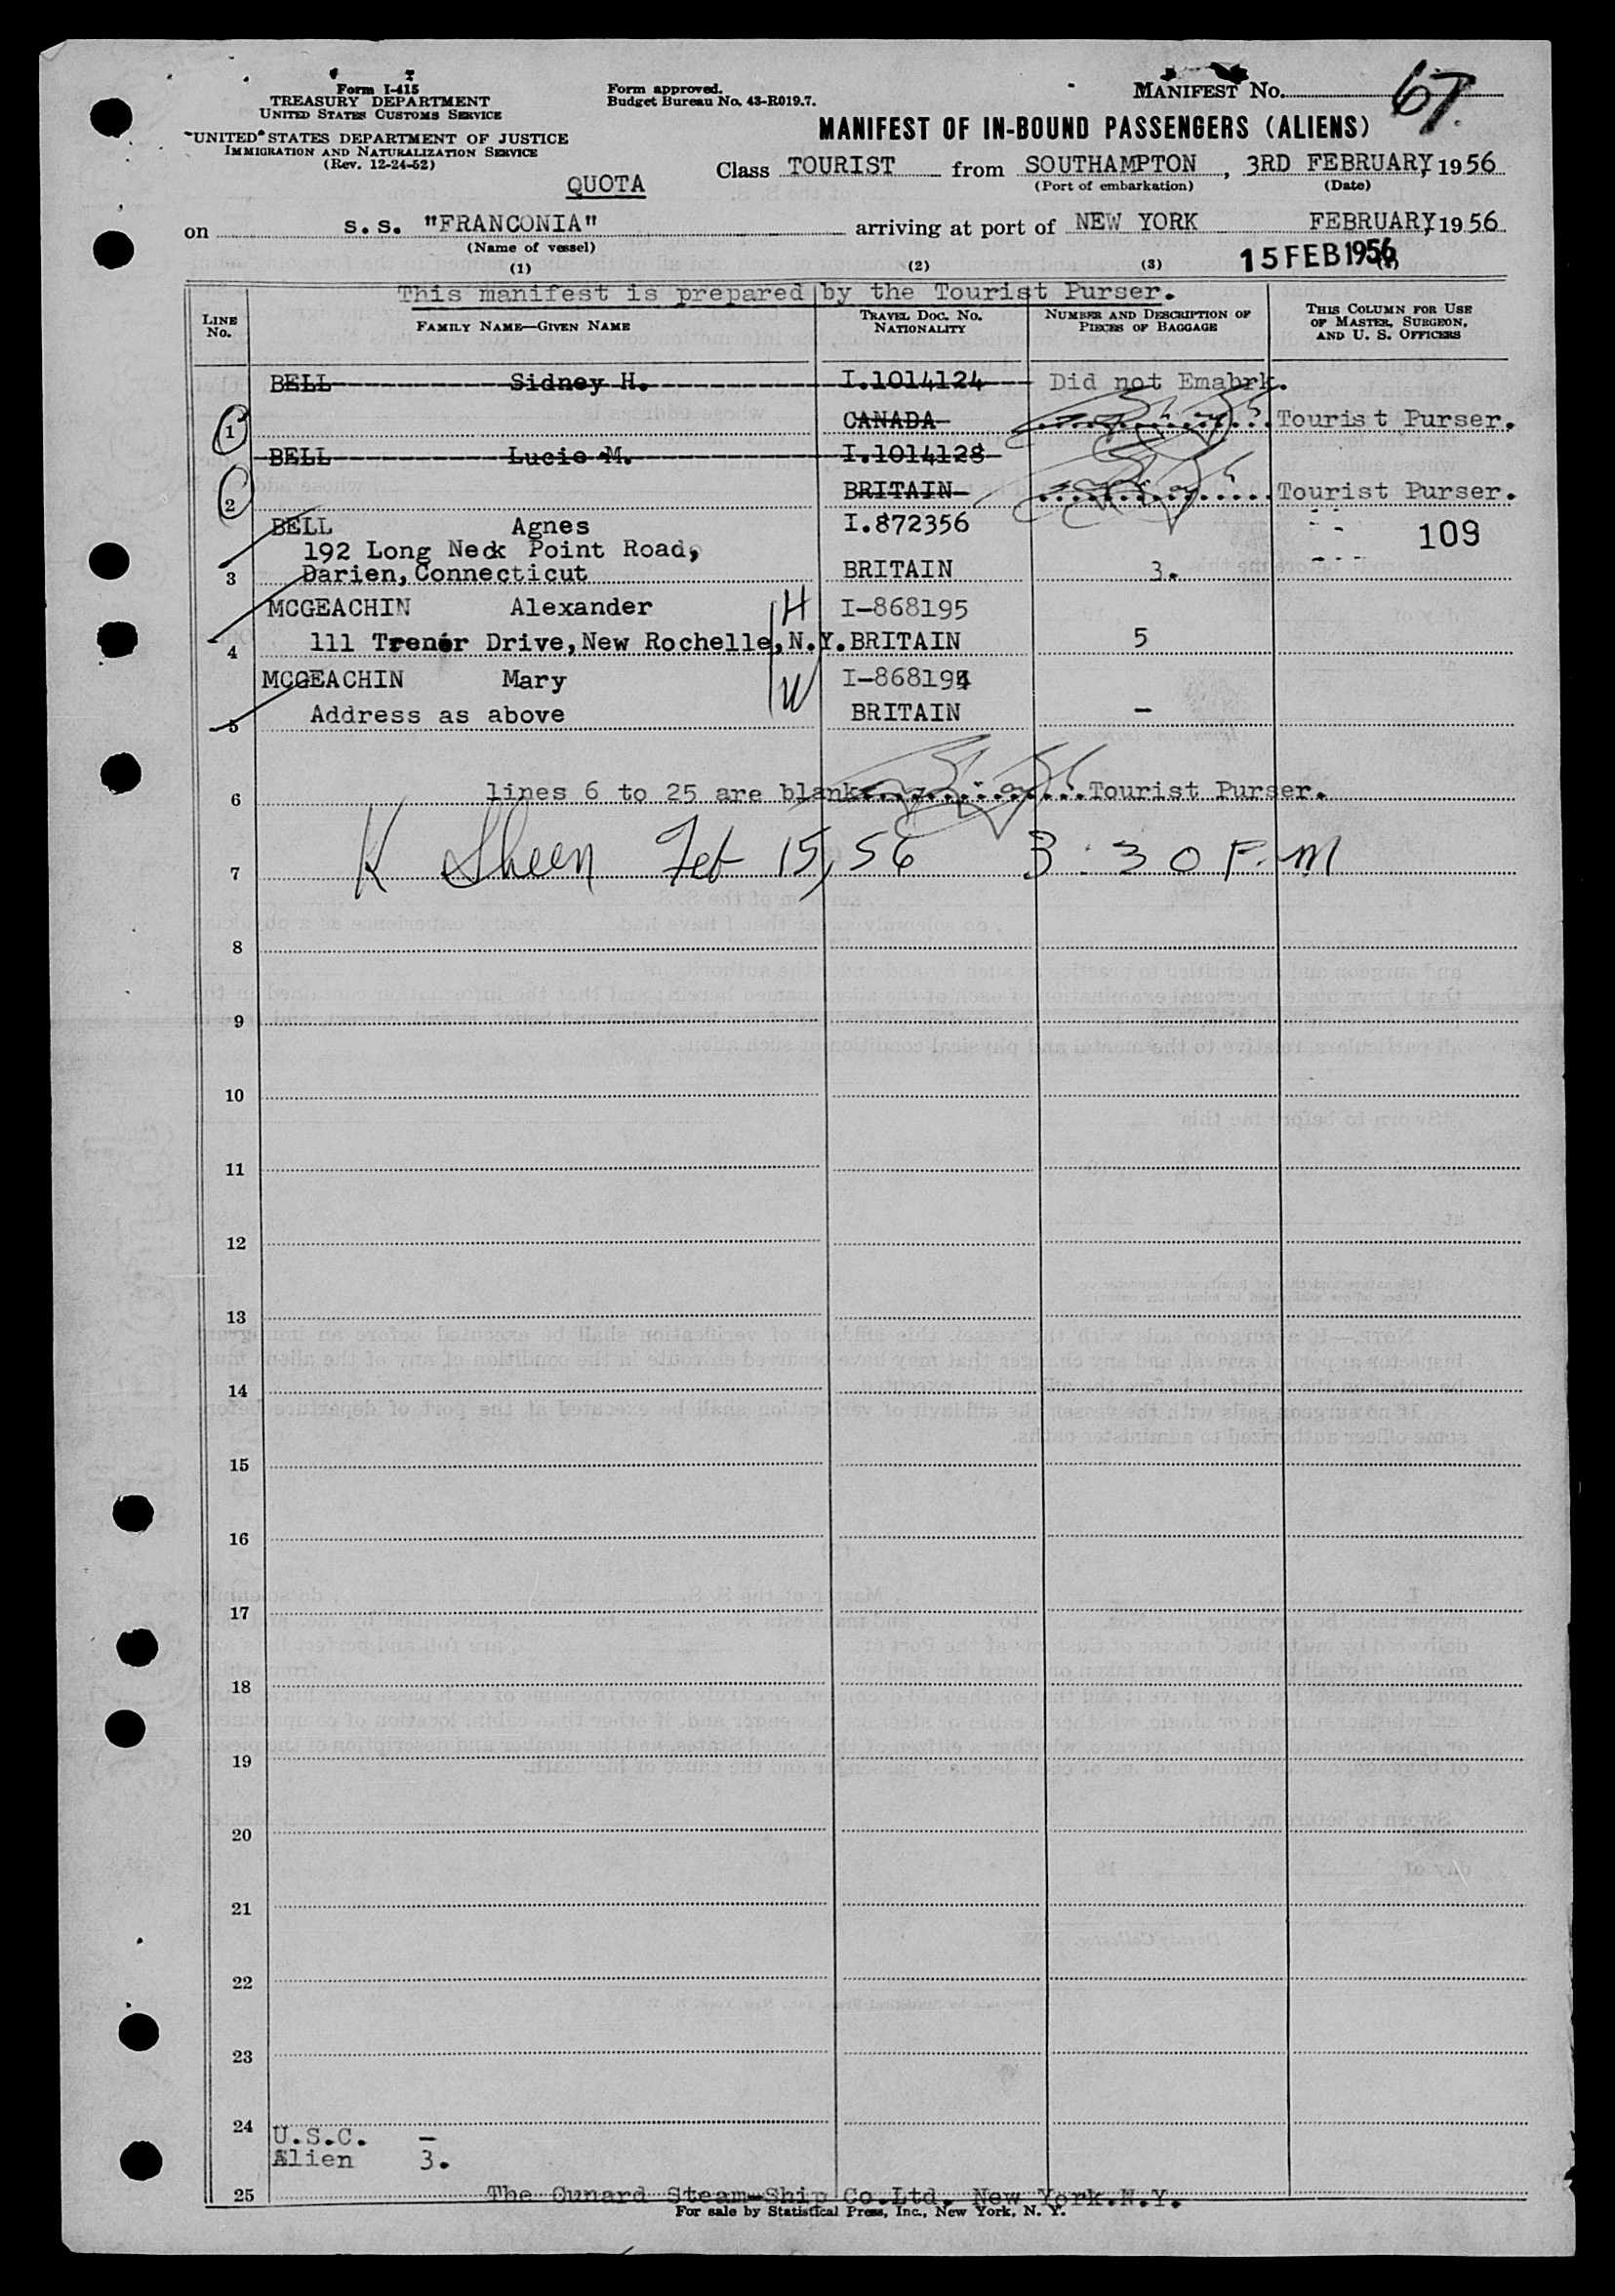 Form I-415
TREASURY DEPARTMENT
UNITED STATES CUSTOMS SERVICE
UNITED STATES DEPARTMENT OF JUSTICE
IMMIGRATION AND NATURALIZATION SERVICE
(Rev. 12-24-52)
Form approved.
Budget Bureau No. 43-R019.7.
MANIFEST No. 67
MANIFEST OF IN-BOUND PASSENGERS (ALIENS)
QUOTA
Class TOURIST from SOUTHAMPTON, 3RD FEBRUARY, 1956
(Port of embarkation) (Date)
on s.s. "FRANCONIA" arriving at port of NEW YORK FEBRUARY, 1956
(Name of vessel)
15 FEB 1956
(1) (2) (3)
This manifest is prepared by the Tourist Purser.
LINE No. FAMILY NAME—GIVEN NAME TRAVEL DOC. No. NATIONALITY NUMBER AND DESCRIPTION OF PIECES OF BAGGAGE THIS COLUMN FOR USE OF MASTER, SURGEON, AND U. S. OFFICERS
BELL Sidney H. I.1014124 Did not Emabrk.
1 CANADA Tourist Purser.
BELL Lucie M. I.1014128
2 BRITAIN Tourist Purser.
BELL Agnes I.872356 109
192 Long Neck Point Road,
3 Darien, Connecticut BRITAIN 3.
MCGEACHIN Alexander H I-868195
4 111 Trenor Drive, New Rochelle, N.Y. BRITAIN 5
MCGEACHIN Mary W I-868194
5 Address as above BRITAIN -
6 lines 6 to 25 are blank Tourist Purser.
7 K Sheen Feb 15, 56 3:30 P.M
8
9
10
11
12
13
14
15
16
17
18
19
20
21
22
23
24
U.S.C. -
Alien 3.
25 The Cunard Steam-Ship Co.Ltd. New York.N.Y.
For sale by Statistical Press, Inc., New York, N. Y.